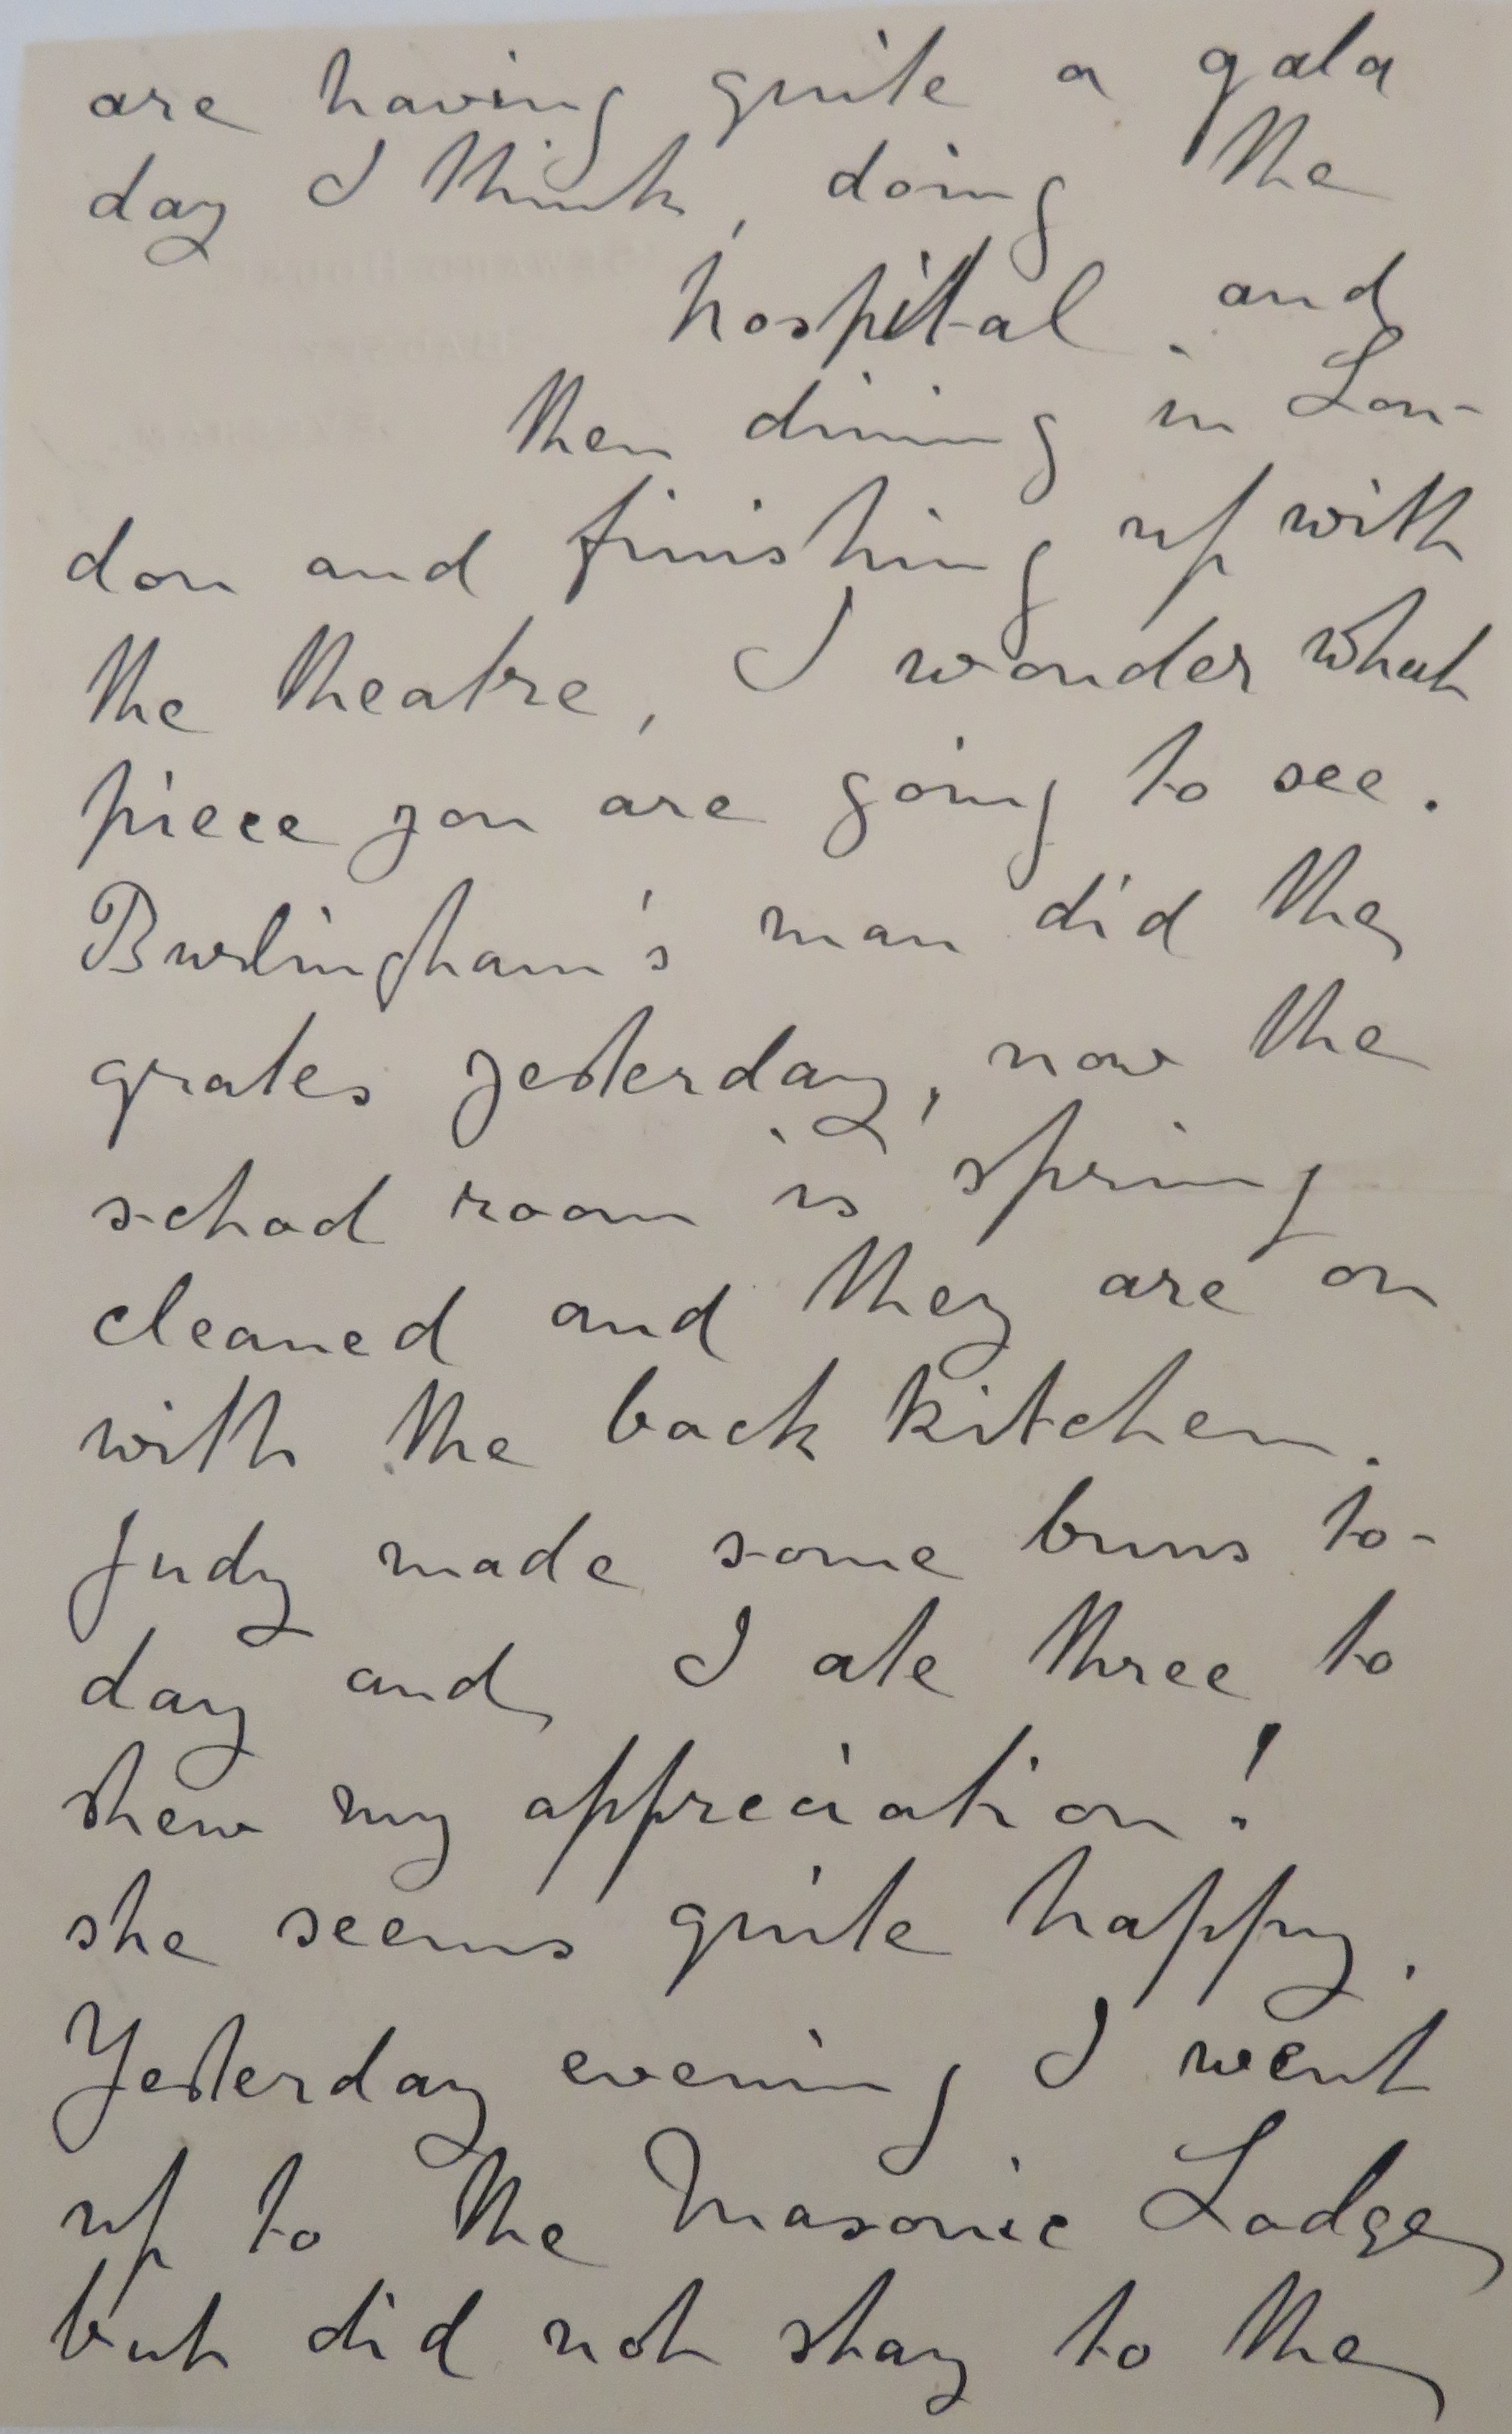 are having quite a gala
day I think, doing the
hospital. and
then dining in Lon-
don and finishing up with
the theatre, I wonder what
piece you are going to see.
Burlingham's man did the
grates yesterday, now the
school room is spring
cleaned and they are on
with the back kitchen.
Judy made some buns to-
day and I ate three to
shew my appreciation!
she seems quite happy.
Yesterday evening I went
up to the Masonic Lodge
but did not stay to the